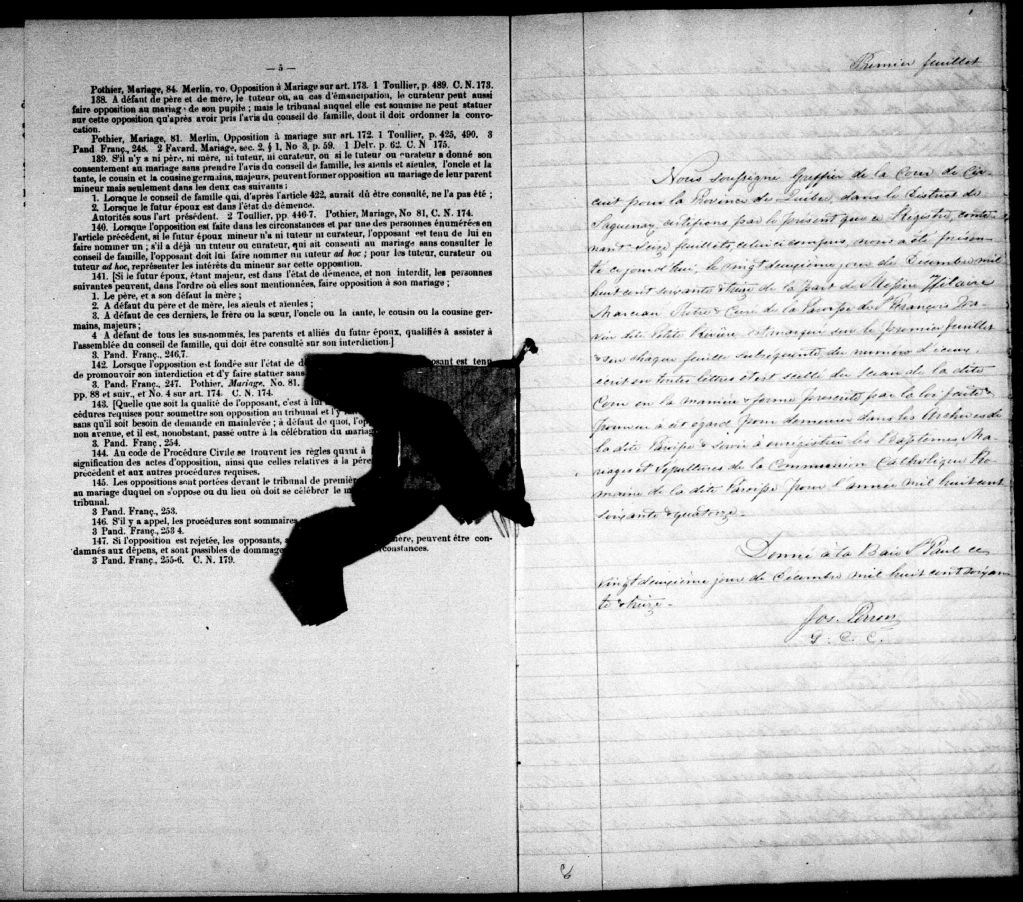 — 5 —
Pothier, Mariage, 84. Merlin, vo. Opposition à Mariage sur art. 173. 1 Toullier, p. 489. C. N. 173.
138. A défaut de père et de mère, le tuteur ou, au cas d'émancipation, le curateur peut aussi
faire opposition au mariag· de son pupile ; mais le tribunal auquel elle est soumise ne peut statuer
sur cette opposition qu'après avoir pris l'avis du conseil de famille, dont il doit ordonner la convo-
cation.
Pothier, Mariage, 81. Merlin, Opposition à mariage sur art. 172. 1 Toullier, p. 425, 490. 3
Pand Franç., 248. 2 Favard. Mariage, sec. 2, § 1, No 3, p. 59. 1 Delv. p. 62. C. N 175.
139. S'il n'y a ni père, ni mère, ni tuteur, ni curateur, ou si le tuteur ou curateur a donné son
consentement au mariage sans prendre l'avis du conseil de famille, les aïeuls et aïeules, l'oncle et la
tante, le cousin et la cousine germains, majeurs, peuvent former opposition au mariage de leur parent
mineur mais seulement dans les deux cas suivants ;
1. Lorsque le conseil de famille qui, d'après l'article 422, aurait dû être consulté, ne l'a pas été ;
2. Lorsque le futur époux est dans l'état de démence.
Autorités sous l'art présédent. 2 Toullier, pp. 446-7. Pothier, Mariage, No 81, C. N. 174.
140. Lorsque l'opposition est faite dans les circonstances et par une des personnes énumérées en
l'article précédent, si le futur époux mineur n'a ni tuteur ni curateur, l'opposant est tenu de lui en
faire nommer un ; s'il a déjà un tuteur ou curateur, qui ait consenti au mariage sans consulter le
conseil de famille, l'opposant doit lui faire nommer un tuteur ad hoc ; pour les tuteur, curateur ou
tuteur ad hoc, représenter les intérêts du mineur sur cette opposition.
141. [Si le futur époux, étant majeur, est dans l'état de démence, et non interdit, les personnes
suivantes peuvent, dans l'ordre où elles sont mentionnées, faire opposition à son mariage ;
1. Le père, et a son défaut la mère ;
2. A défaut du père et de mère, les aïeuls et aïeules ;
3. A défaut de ces derniers, le frère ou la sœur, l'oncle ou la tante, le cousin ou la cousine ger-
mains, majeurs ;
4 A défaut de tous les sus-nommés, les parents et alliés du futur époux, qualifiés à assister à
l'assemblée du conseil de famille, qui doit être consulté sur son interdiction.]
3. Pand. Franç., 246,7.
142. Lorsque l'opposition est fondée sur l'état de d posant est tenu
de promouvoir son interdiction et d'y faire statuer sans
3. Pand. Franç., 247. Pothier, Mariage, No. 81.
pp. 88 et suiv., et No. 4 sur art. 174. C. N. 174.
143. [Quelle que soit la qualité de l'opposant, c'est à lui
cédures requises pour soumettre son opposition au tribunal et l'y
sans qu'il soit besoin de demande en mainlevée ; à défaut de quoi, l'op
non avenue, et il est, nonobstant, passé ontre à la célébration du mariag
3. Pand. Franç., 254.
144. Au code de Procédure Civile se trouvent les règles quant à
signification des actes d'opposition, ainsi que celles relatives à la pére
précédent et aux autres procédures requises.
145. Les oppositions sont portées devant le tribunal de premièr
au mariage duquel on s'oppose ou du lieu où doit se célébrer le m
tribunal.
3 Pand. Franç., 253.
146. S'il y a appel, les procédures sont sommaires
3 Pand. Franç., 253 4.
147. Si l'opposition est rejetée, les opposants, a mère, peuvent être con-
damnés aux dépens, et sont passibles de dommag constances.
3 Pand. Franç., 255-6. C. N. 179.
Premier feuillet
Nous soussigné Greffier de la Cour de Cir-
cuit pour la Province de Québec, dans le District de
Saguenay, certifions par le présent que ce Registre, conte-
nant Seize feuillets, celui ci compris, nous a été présen-
té ce jourd'hui, le vingt deuxième jour de Décembre mil
huit cent soixante & treize de la part de Messire Hilaire
Marceau Prêtre & Curé de la Paroisse de St François Xa-
vier dite Petite Rivière est marqué sur le premier feuillet
& sur chaque feuille subséquente du numéro d'iceux
écrit en toutes lettres et est scellé du sceau de la dite
Cour en la manière & forme prescrite par la loi faite &
pourvue à cet égard pour demeurer dans les Archives de
la dite Paroisse & servir à enregistrer les Baptêmes Ma-
riages et Sépultures de la Communion Catholique Ro-
maine de la dite Paroisse pour l'année mil huit cent
soixante & quatorze.
Donné à la Baie St Paul ce
vingt deuxième jour de Décembre mil huit cent soixan-
te & treize.
Jos. Perron
G. C. C.